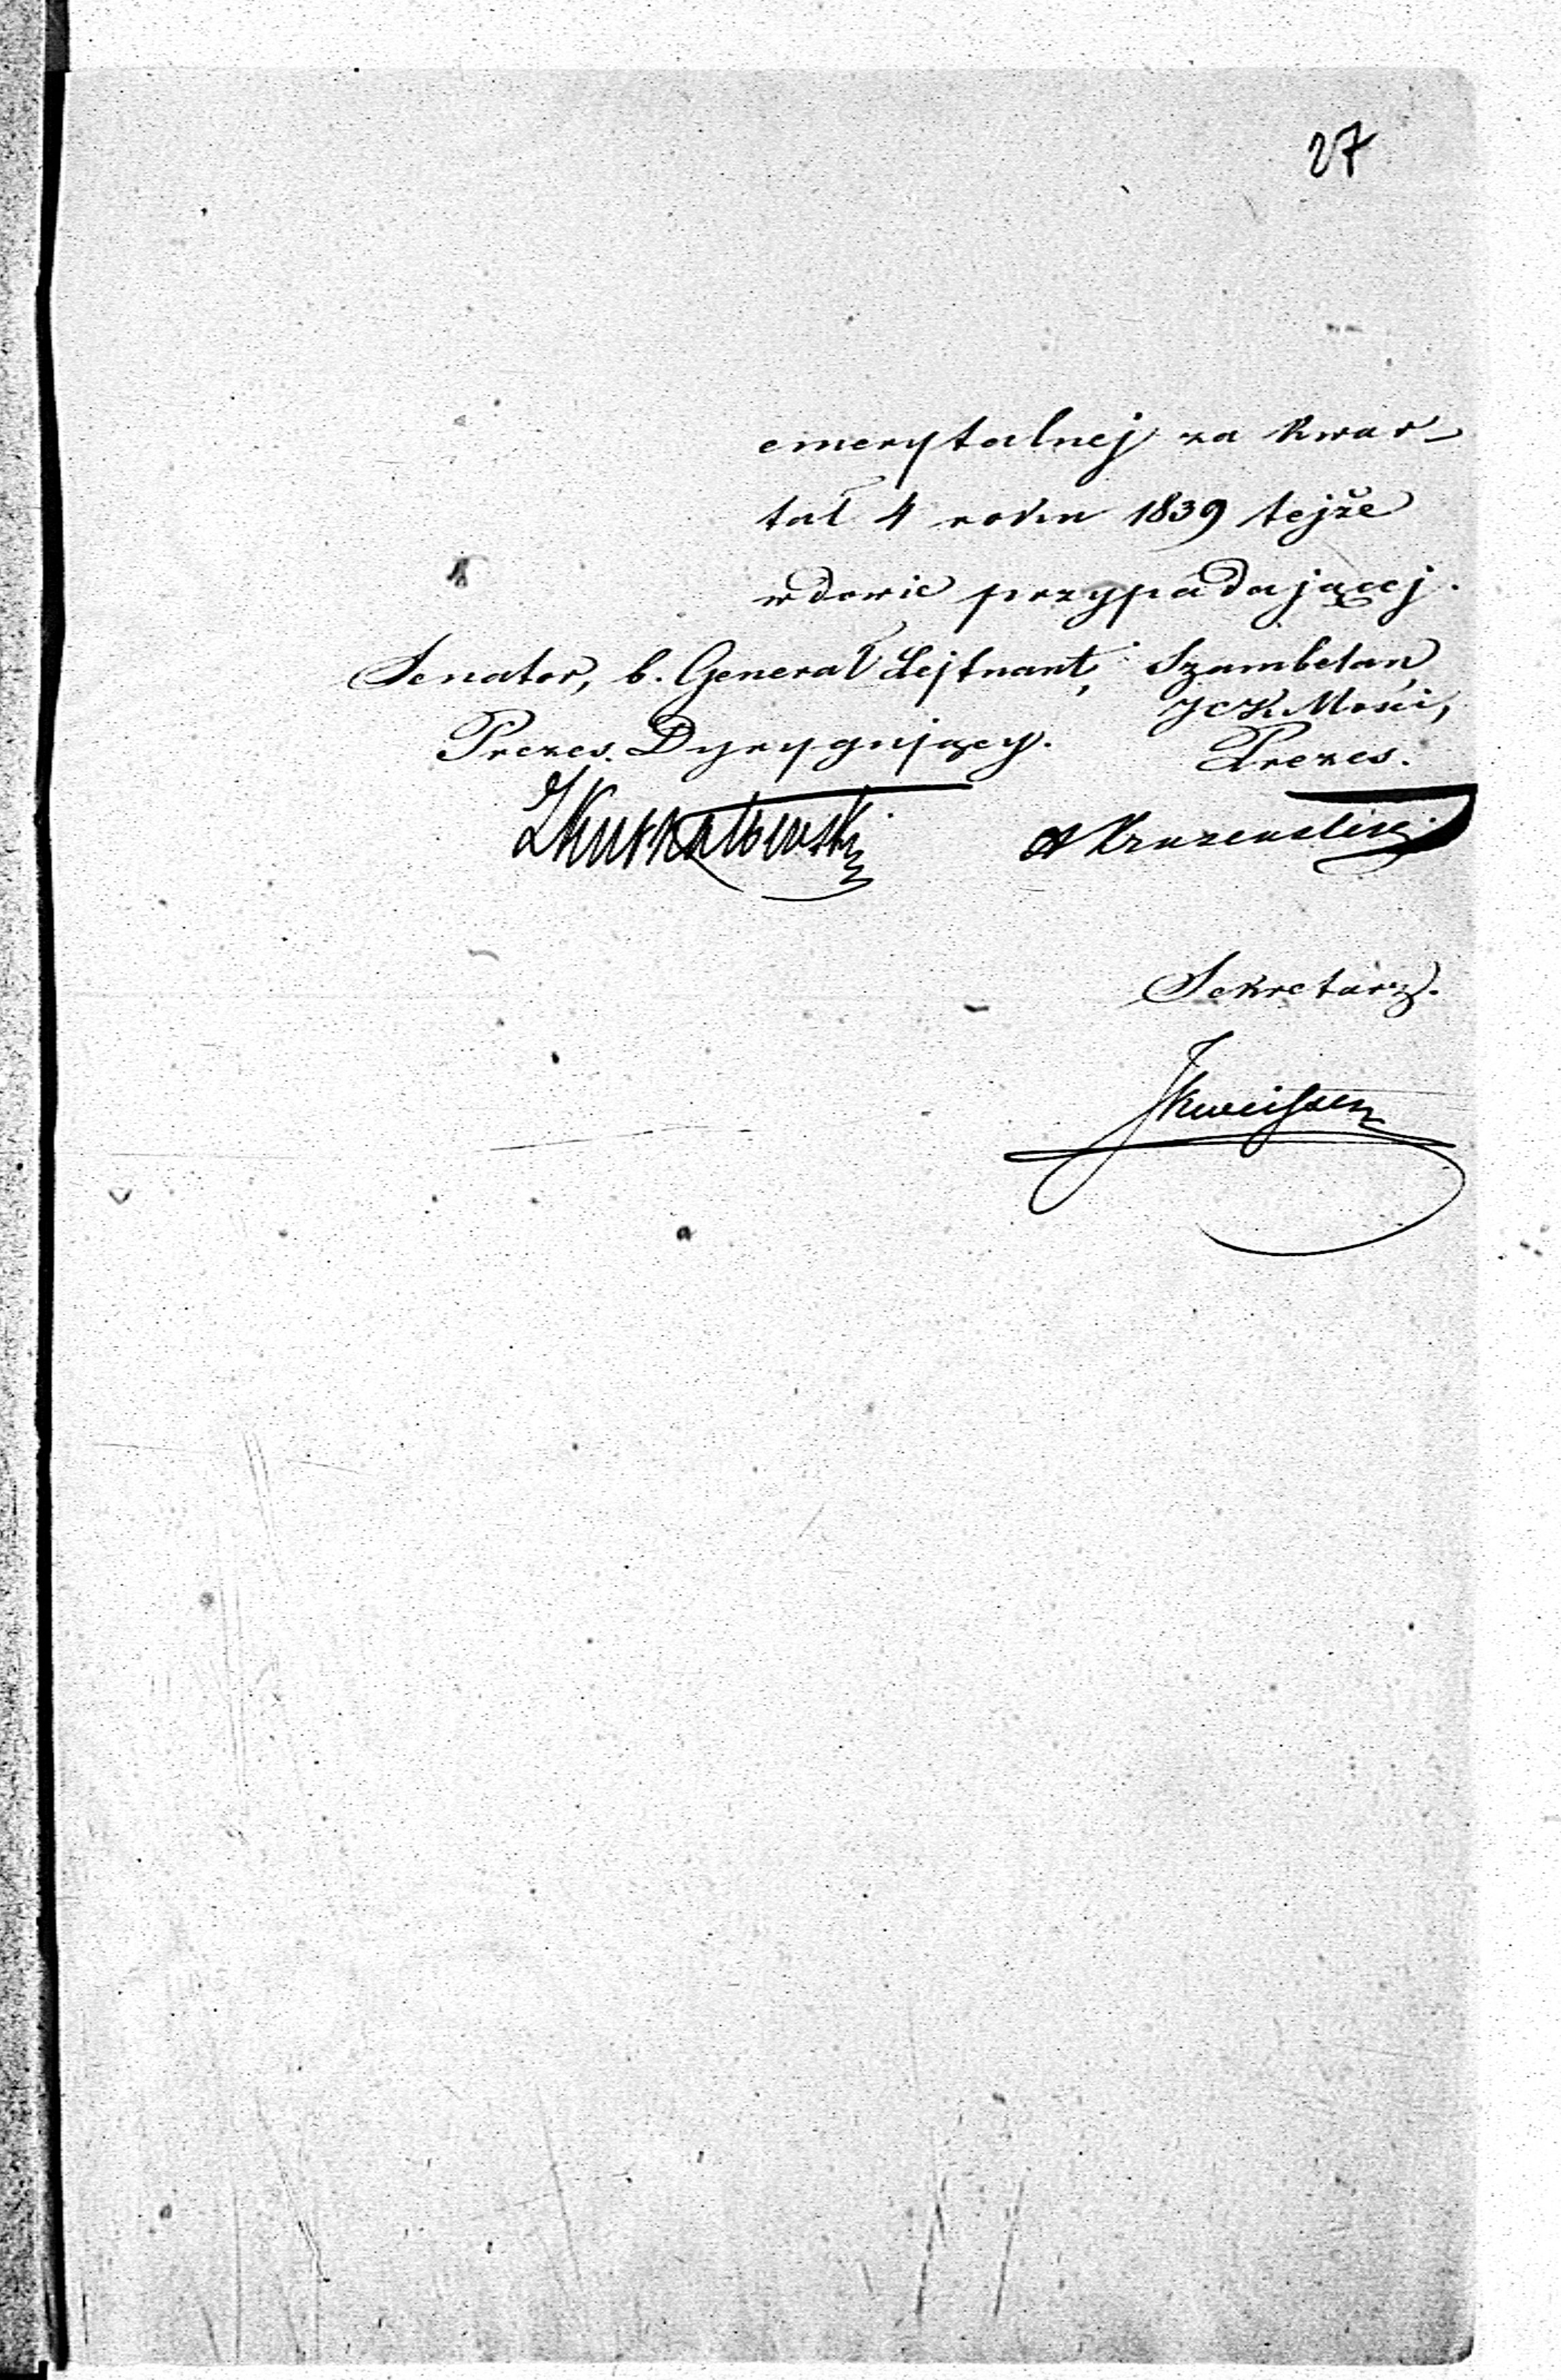 27
emerytalnej za kwar-
tał 4 roku 1839 tejże
wdowie przypadającej.
Senator, b. Generał Lejtnant, Szambelan
JCK Mości,
Prezes Dyrygujący. Prezes.
Sekretarz.